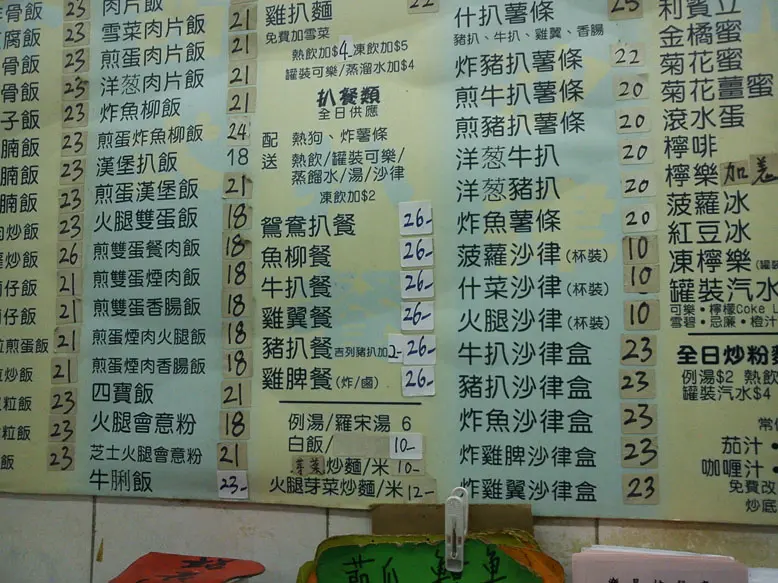 骨飯 23
腐飯 23
骨飯 23
骨飯 23
子飯 23
腩飯 23
腩飯 23
腩飯 23
炒飯 23
炒飯 26
仔飯 21
仔飯 21
煎蛋飯 21
炒飯 21
粒飯 23
粒飯 23
飯 23
肉片飯 21
雪菜肉片飯 21
煎蛋肉片飯 21
洋葱肉片飯 21
炸魚柳飯 21
煎蛋炸魚柳飯 24
漢堡扒飯 18
煎蛋漢堡飯 21
火腿雙蛋飯 18
煎雙蛋餐肉飯 18
煎雙蛋煙肉飯 18
煎雙蛋香腸飯 18
煎蛋煙肉火腿飯 18
煎蛋煙肉香腸飯 18
四寶飯 21
火腿會意粉 18
芝士火腿會意粉 21
牛脷飯 23-
雞扒麵 22
免費加雪菜
熱飲加$4 凍飲加$5
罐裝可樂/蒸溜水加$4
扒餐類
全日供應
配 熱狗、炸薯條
送 熱飲/罐裝可樂/
蒸餾水/湯/沙律
凍飲加$2
鴛鴦扒餐 26-
魚柳餐 26-
牛扒餐 26-
雞翼餐 26-
豬扒餐 吉列豬扒加2- 26-
雞脾餐 (炸/鹵) 26-
例湯/羅宋湯 6
白飯/ 10-
芽菜炒麵/米 10-
火腿芽菜炒麵/米 12-
什扒薯條 25
豬扒、牛扒、雞翼、香腸
炸豬扒薯條 22
煎牛扒薯條 20
煎豬扒薯條 20
洋葱牛扒 20
洋葱豬扒 20
炸魚薯條 20
菠蘿沙律(杯裝) 10
什菜沙律(杯裝) 10
火腿沙律(杯裝) 10
牛扒沙律盒 23
豬扒沙律盒 23
炸魚沙律盒 23
炸雞脾沙律盒 23
炸雞翼沙律盒 23
利賓
金橘蜜
菊花蜜
菊花薑蜜
滾水蛋
檸啡
檸樂 加
菠蘿冰
紅豆冰
凍檸樂(罐裝
罐裝汽水
可樂•檸檬Coke L
雪碧•忌廉•橙汁
全日炒粉麵
例湯$2 熱飲
罐裝汽水$4
茄汁•
咖喱汁•
免費改
炒底